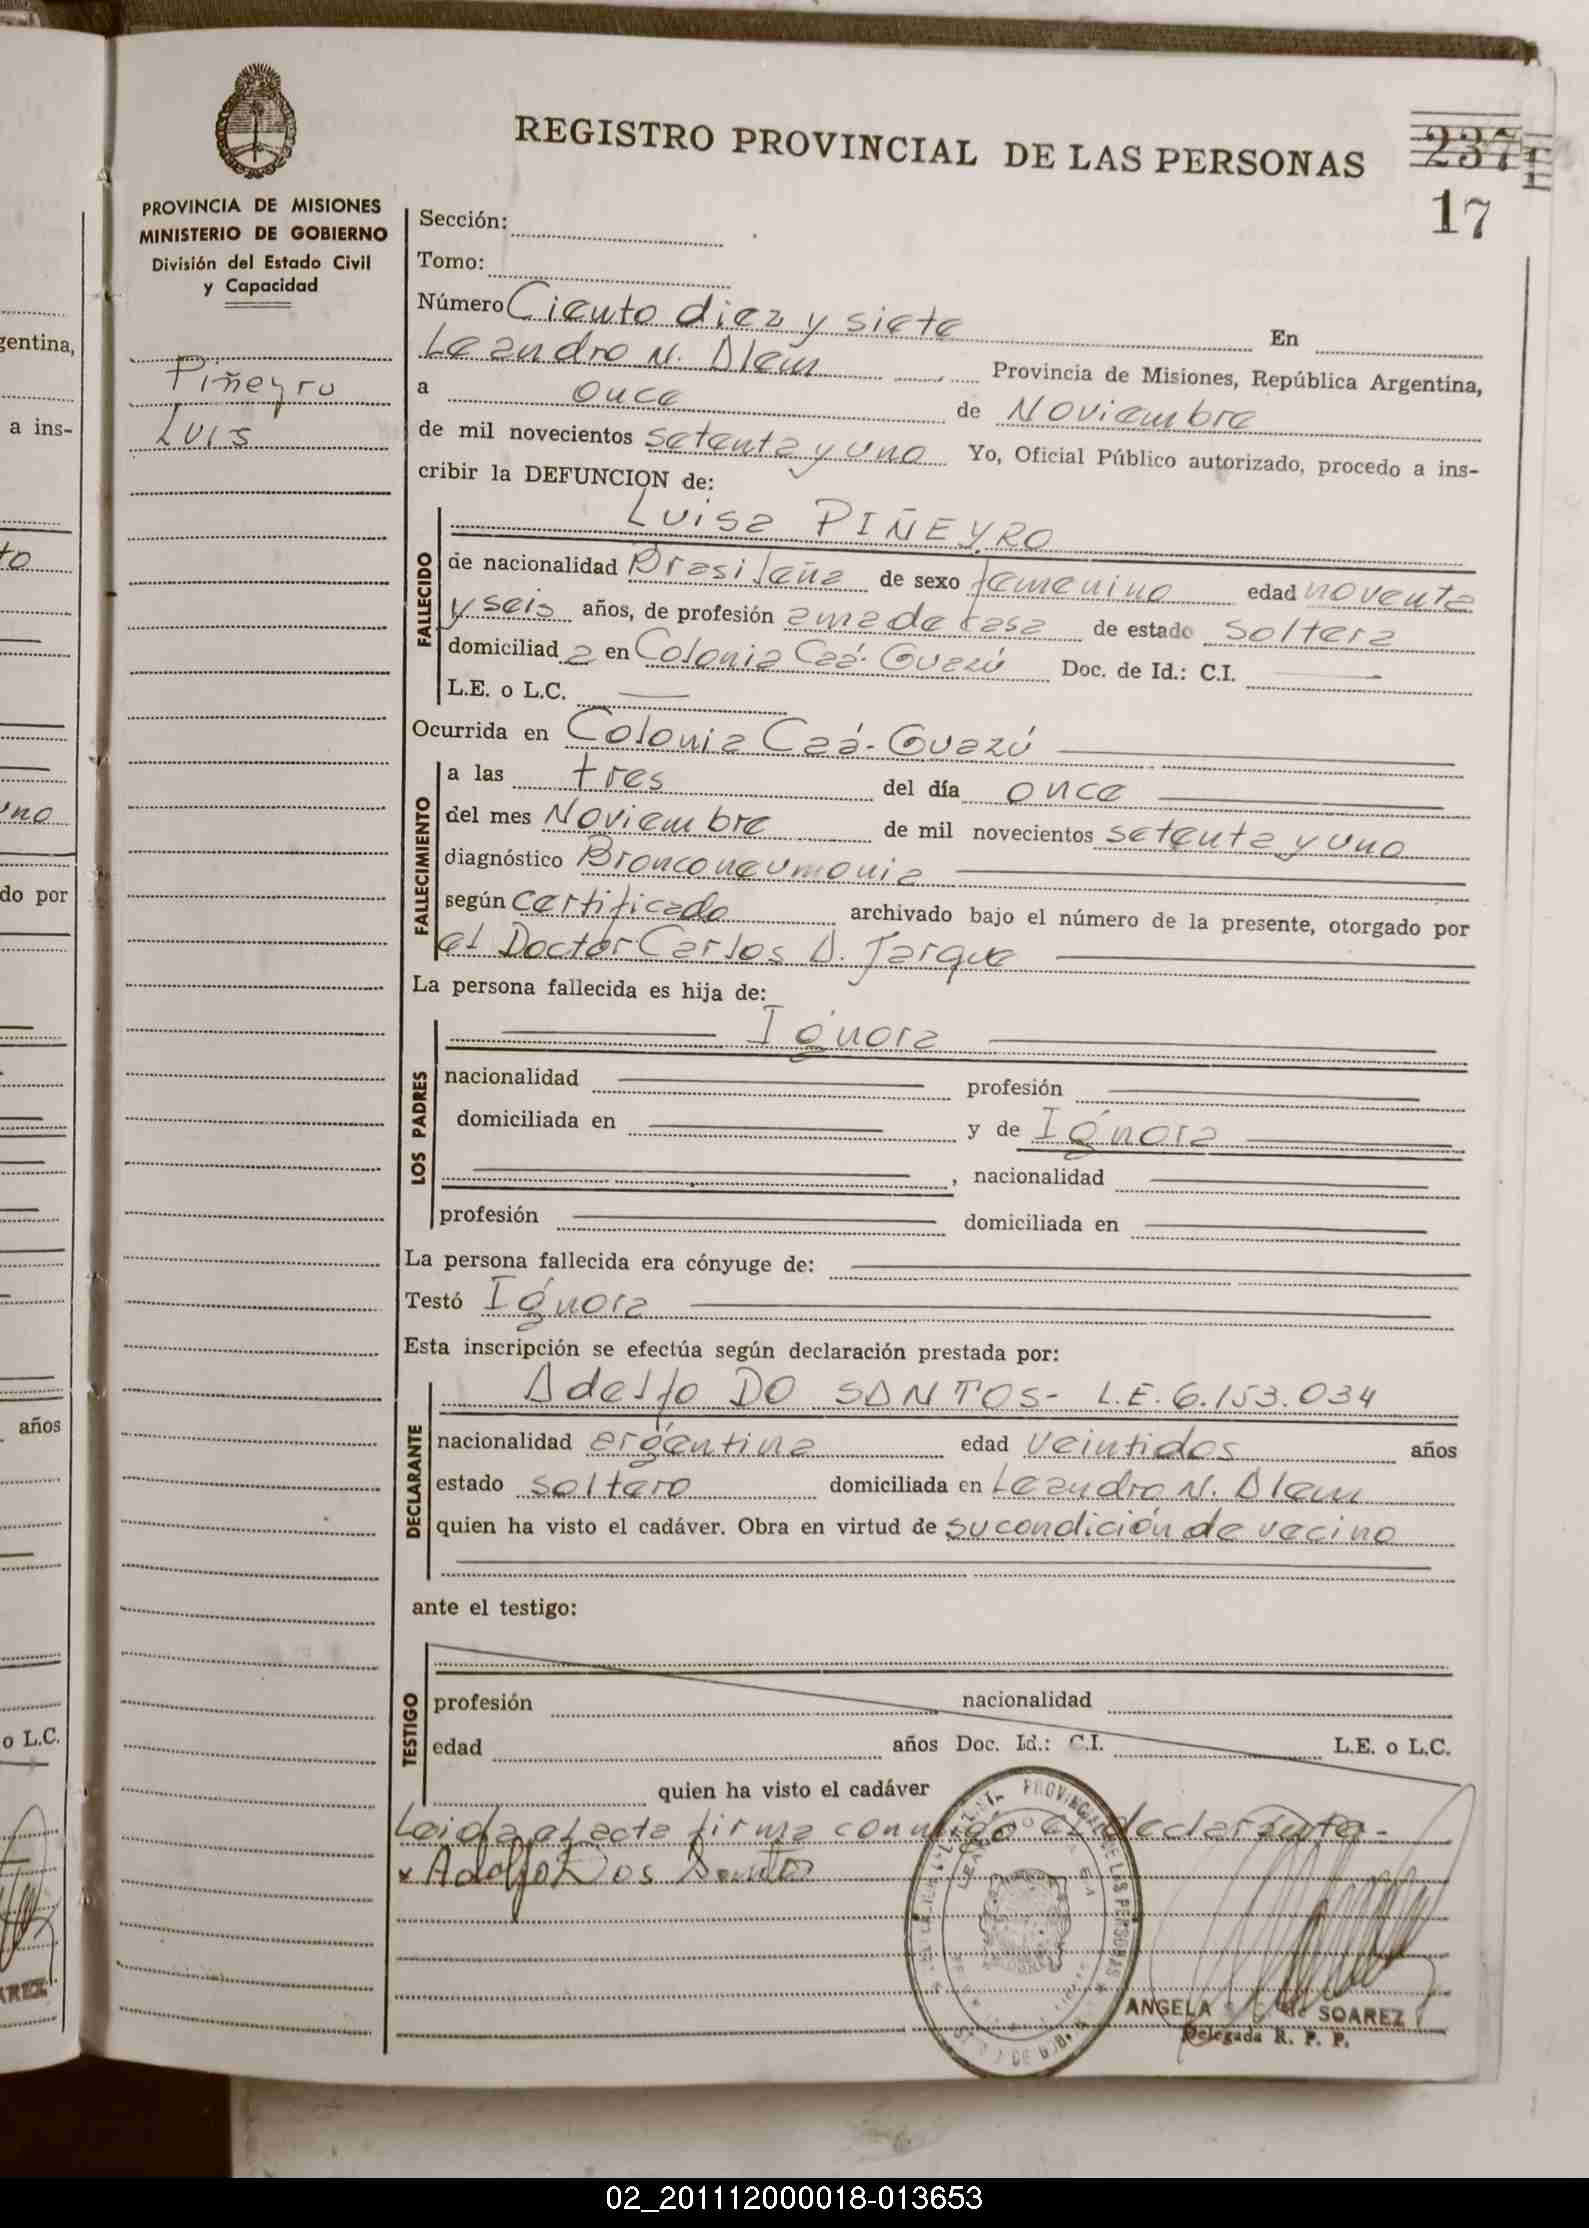 REGISTRO PROVINCIAL DE LAS PERSONAS
237
17
PROVINCIA DE MISIONES
MINISTERIO DE GOBIERNO
División del Estado Civil
y Capacidad
Piñeyro
Luis
Sección:
Tomo:
Número Ciento diez y siete En
Leandro N. Alem Provincia de Misiones, República Argentina,
a once de Noviembre
de mil novecientos setenta y uno Yo, Oficial Público autorizado, procedo a ins-
cribir la DEFUNCION de:
Luisa PIÑEYRO
FALLECIDO
de nacionalidad Brasileña de sexo femenino edad noventa
y seis años, de profesión ama de casa de estado soltera
domiciliad a en Colonia Caá-Guazú Doc. de Id.: C.I.
L.E. o L.C.
Ocurrida en Colonia Caá-Guazú
FALLECIMIENTO
a las tres del día once
del mes Noviembre de mil novecientos setenta y uno
diagnóstico Bronconeumonia
según certificado archivado bajo el número de la presente, otorgado por
el Doctor Carlos A. Jarque
La persona fallecida es hija de:
LOS PADRES
Ignora
nacionalidad profesión
domiciliada en y de Ignora
, nacionalidad
profesión domiciliada en
La persona fallecida era cónyuge de:
Testó Ignora
Esta inscripción se efectúa según declaración prestada por:
DECLARANTE
Adolfo DO SANTOS- L.E. 6.153.034
nacionalidad argentina edad veintidos años
estado soltero domiciliada en Leandro N. Alem
quien ha visto el cadáver. Obra en virtud de su condición de vecino
ante el testigo:
TESTIGO
profesión nacionalidad
edad años Doc. Id.: C.I. L.E. o L.C.
quien ha visto el cadáver
Leida el acta firma conmigo el declarante-
x Adolfo Dos Santos
ANGELA de SOAREZ
Delegada R. P. P.
gentina,
a ins-
to
uno
do por
años
o L.C.
AREZ
02_201112000018-013653